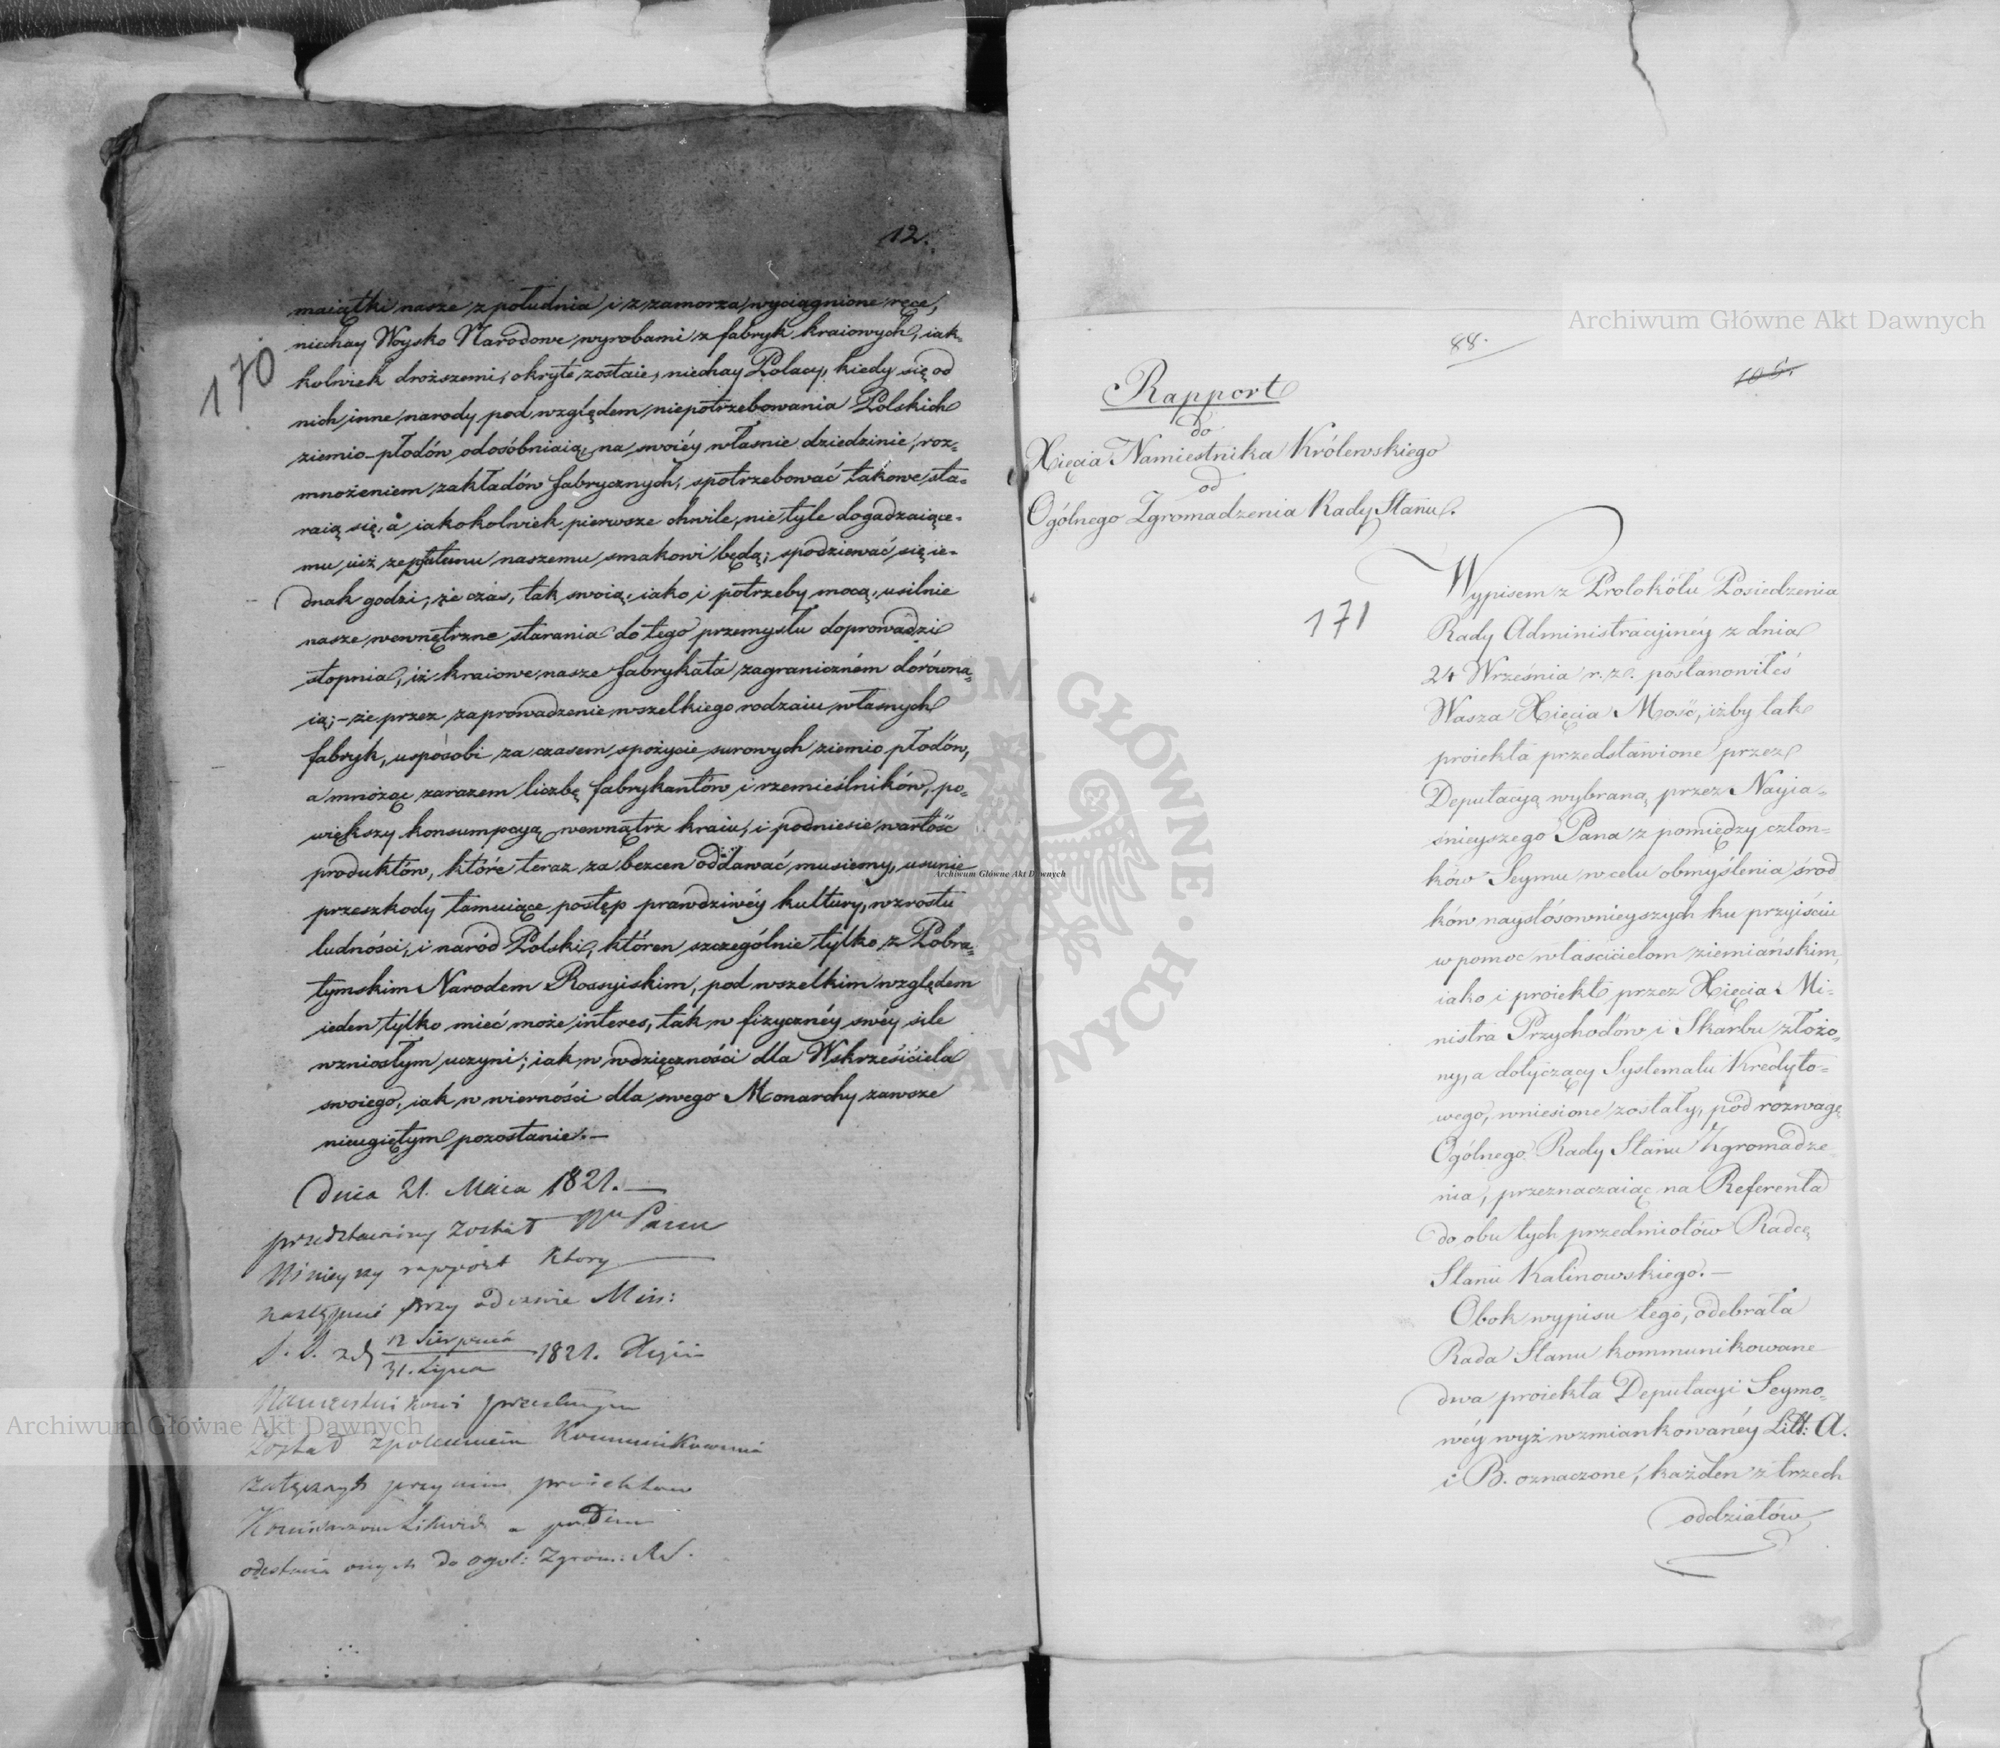 12.
170
maiątki nasze z południa i z zamorza wyciągnione ręce,
niechay Woysko Narodowe wyrobami z fabryk kraiowych, iak-
kolwiek droższemi, okryte zostaie, niechay Polacy, kiedy się od
nich inne narody pod względem niepotrzebowania Polskich
ziemio-płodów odosóbniaią, na swoiéy własnie dziedzinie, roz-
mnożeniem zakładów fabrycznych, spotrzebować takowe sta-
raią się, a iakokolwiek pierwsze chwile, nie tyle dogadzaiące-
mu iuż zepsutemu naszemu smakowi będą; spodziewać się ie-
dnak godzi; że czas, tak swoią, iako i potrzeby mocą, usilnie
nasze wewnętrzne starania do tego przemysłu doprowadzi
stopnia, iż kraiowe nasze fabrykata zagraniczném dorówna-
ią; – że przez zaprowadzenie wszelkiego rodzaiu własnych
fabryk, usposobi za czasem spożycie surowych ziemio płodów,
a mnożąc zarazem liczbę fabrykantów i rzemieślników, po-
większy konsumpcyą wewnątrz kraiu, i podniesie wartość
produktów, które teraz za bezcen oddawać musiemy, usunie
przeszkody tamuiące postęp prawdziwéy kultury, wzrostu
ludności, i naród Polski, któren szczególnie tylko z Pobra-
tymskim Narodem Rossyiskim, pod wszelkim względem
ieden tylko mieć może interes, tak w fizycznéy swéy sile
wzniosłym uczyni; iak w wdzięczności dla Wskrzesiciela
swoiego, iak w wierności dla swego Monarchy zawsze
nieugiętym pozostanie. –
Dnia 21. Maia 1821. –
przedstawiony został Nu Panu
Ninieyszy rapport który
następnie przy odezwie Min:
S. S. z d. 12 Sierpnia
31. Lipca 1821. Xięciu
Namiestnikowi przesłanym
został z poleceniem kommunikowania
załączonych przy nim proiektów
a potem
odesłania onych do ogól: Zgrom: R.S.
88.
105.
Rapport
do
Xięcia Namiestnika Królewskiego
od
Ogólnego Zgromadzenia Rady Stanu.
171
Wypisem z Protokółu Posiedzenia
Rady Administracyjnéy z dnia
24 Września r. z. postanowiłeś
Wasza Xięcia Mość, iżby tak
proiekta przedstawione przez
Deputacyą wybraną przez Nayia-
śnieyszego Pana z pomiędzy człon-
ków Seymu w celu obmyślenia środ-
ków naystósownieyszych ku przyiściu
w pomoc właścicielom ziemiańskim,
iako i proiekt przez Xięcia Mi-
nistra Przychodów i Skarbu złożo-
ny, a dotyczący Systematu Kredyto-
wego, wniesione zostały, pod rozwagę
Ogólnego Rady Stanu Zgromadze-
nia, przeznaczaiąc na Referenta
do obu tych przedmiotów Radcę
Stanu Kalinowskiego. –
Obok wypisu tego, odebrała
Rada Stanu kommunikowane
dwa proiekta Deputacyi Seymo-
wéy wyż wzmiankowanéy Litt: A.
i B. oznaczone, każden z trzech
oddziałów
Archiwum Główne Akt Dawnych
Archiwum Główne Akt Dawnych
Archiwum Główne Akt Dawnych